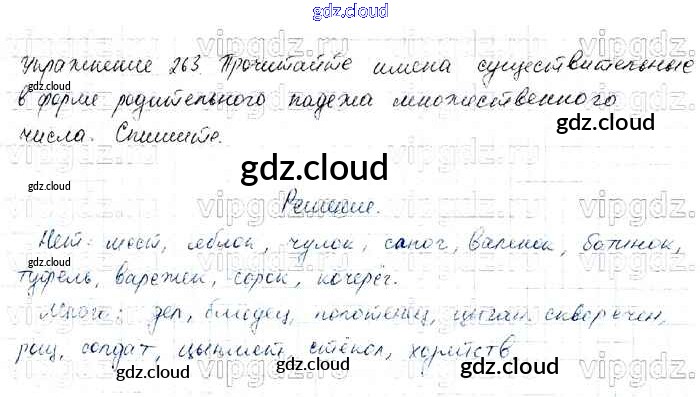 gdz.cloud
Упражнение 263. Прочитайте имена существительные
gdz.cloud
в форме родительного падежа множественного
числа. Спишите.
gdz.cloud
gdz.cloud
gdz.cloud
Решение.
Нет: мест, яблок, чулок, сапог, валенок, ботинок,
gdz.cloud
туфель, варежек, сорок, кочерёг.
Много: дел, блюдец, полотенец, цыган, скворечен,
gdz.cloud
солдат, цыплят, стёкол, хозяйств
gdz.cloud
gdz.cloud